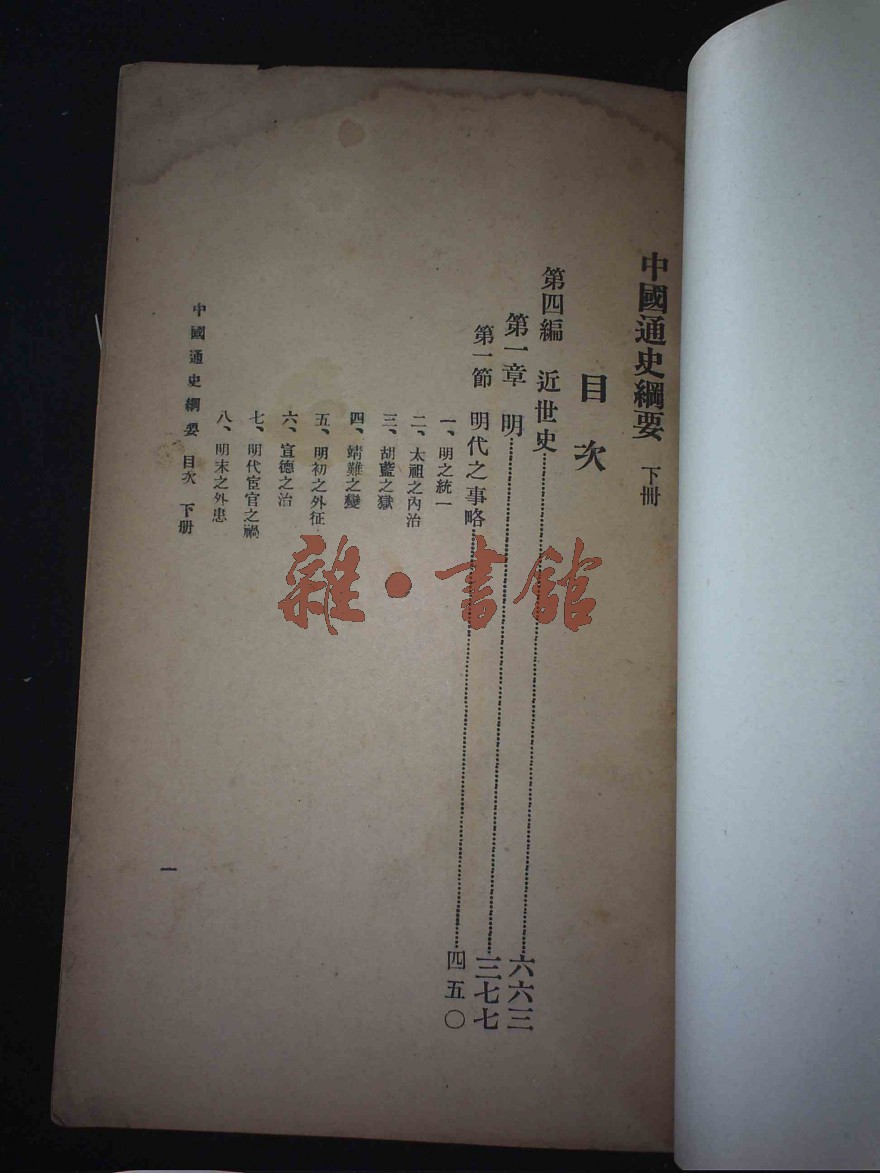 中國通史綱要 下冊
目次
第四編 近世史……六六三
第一章 明……三七七
第一節 明代之事略……四五〇
一、明之統一
二、太祖之內治
三、胡藍之獄
四、靖難之變
五、明初之外征
六、宣德之治
七、明代宦官之禍
八、明末之外患
中國通史綱要 目次 下册
一
雜·書館